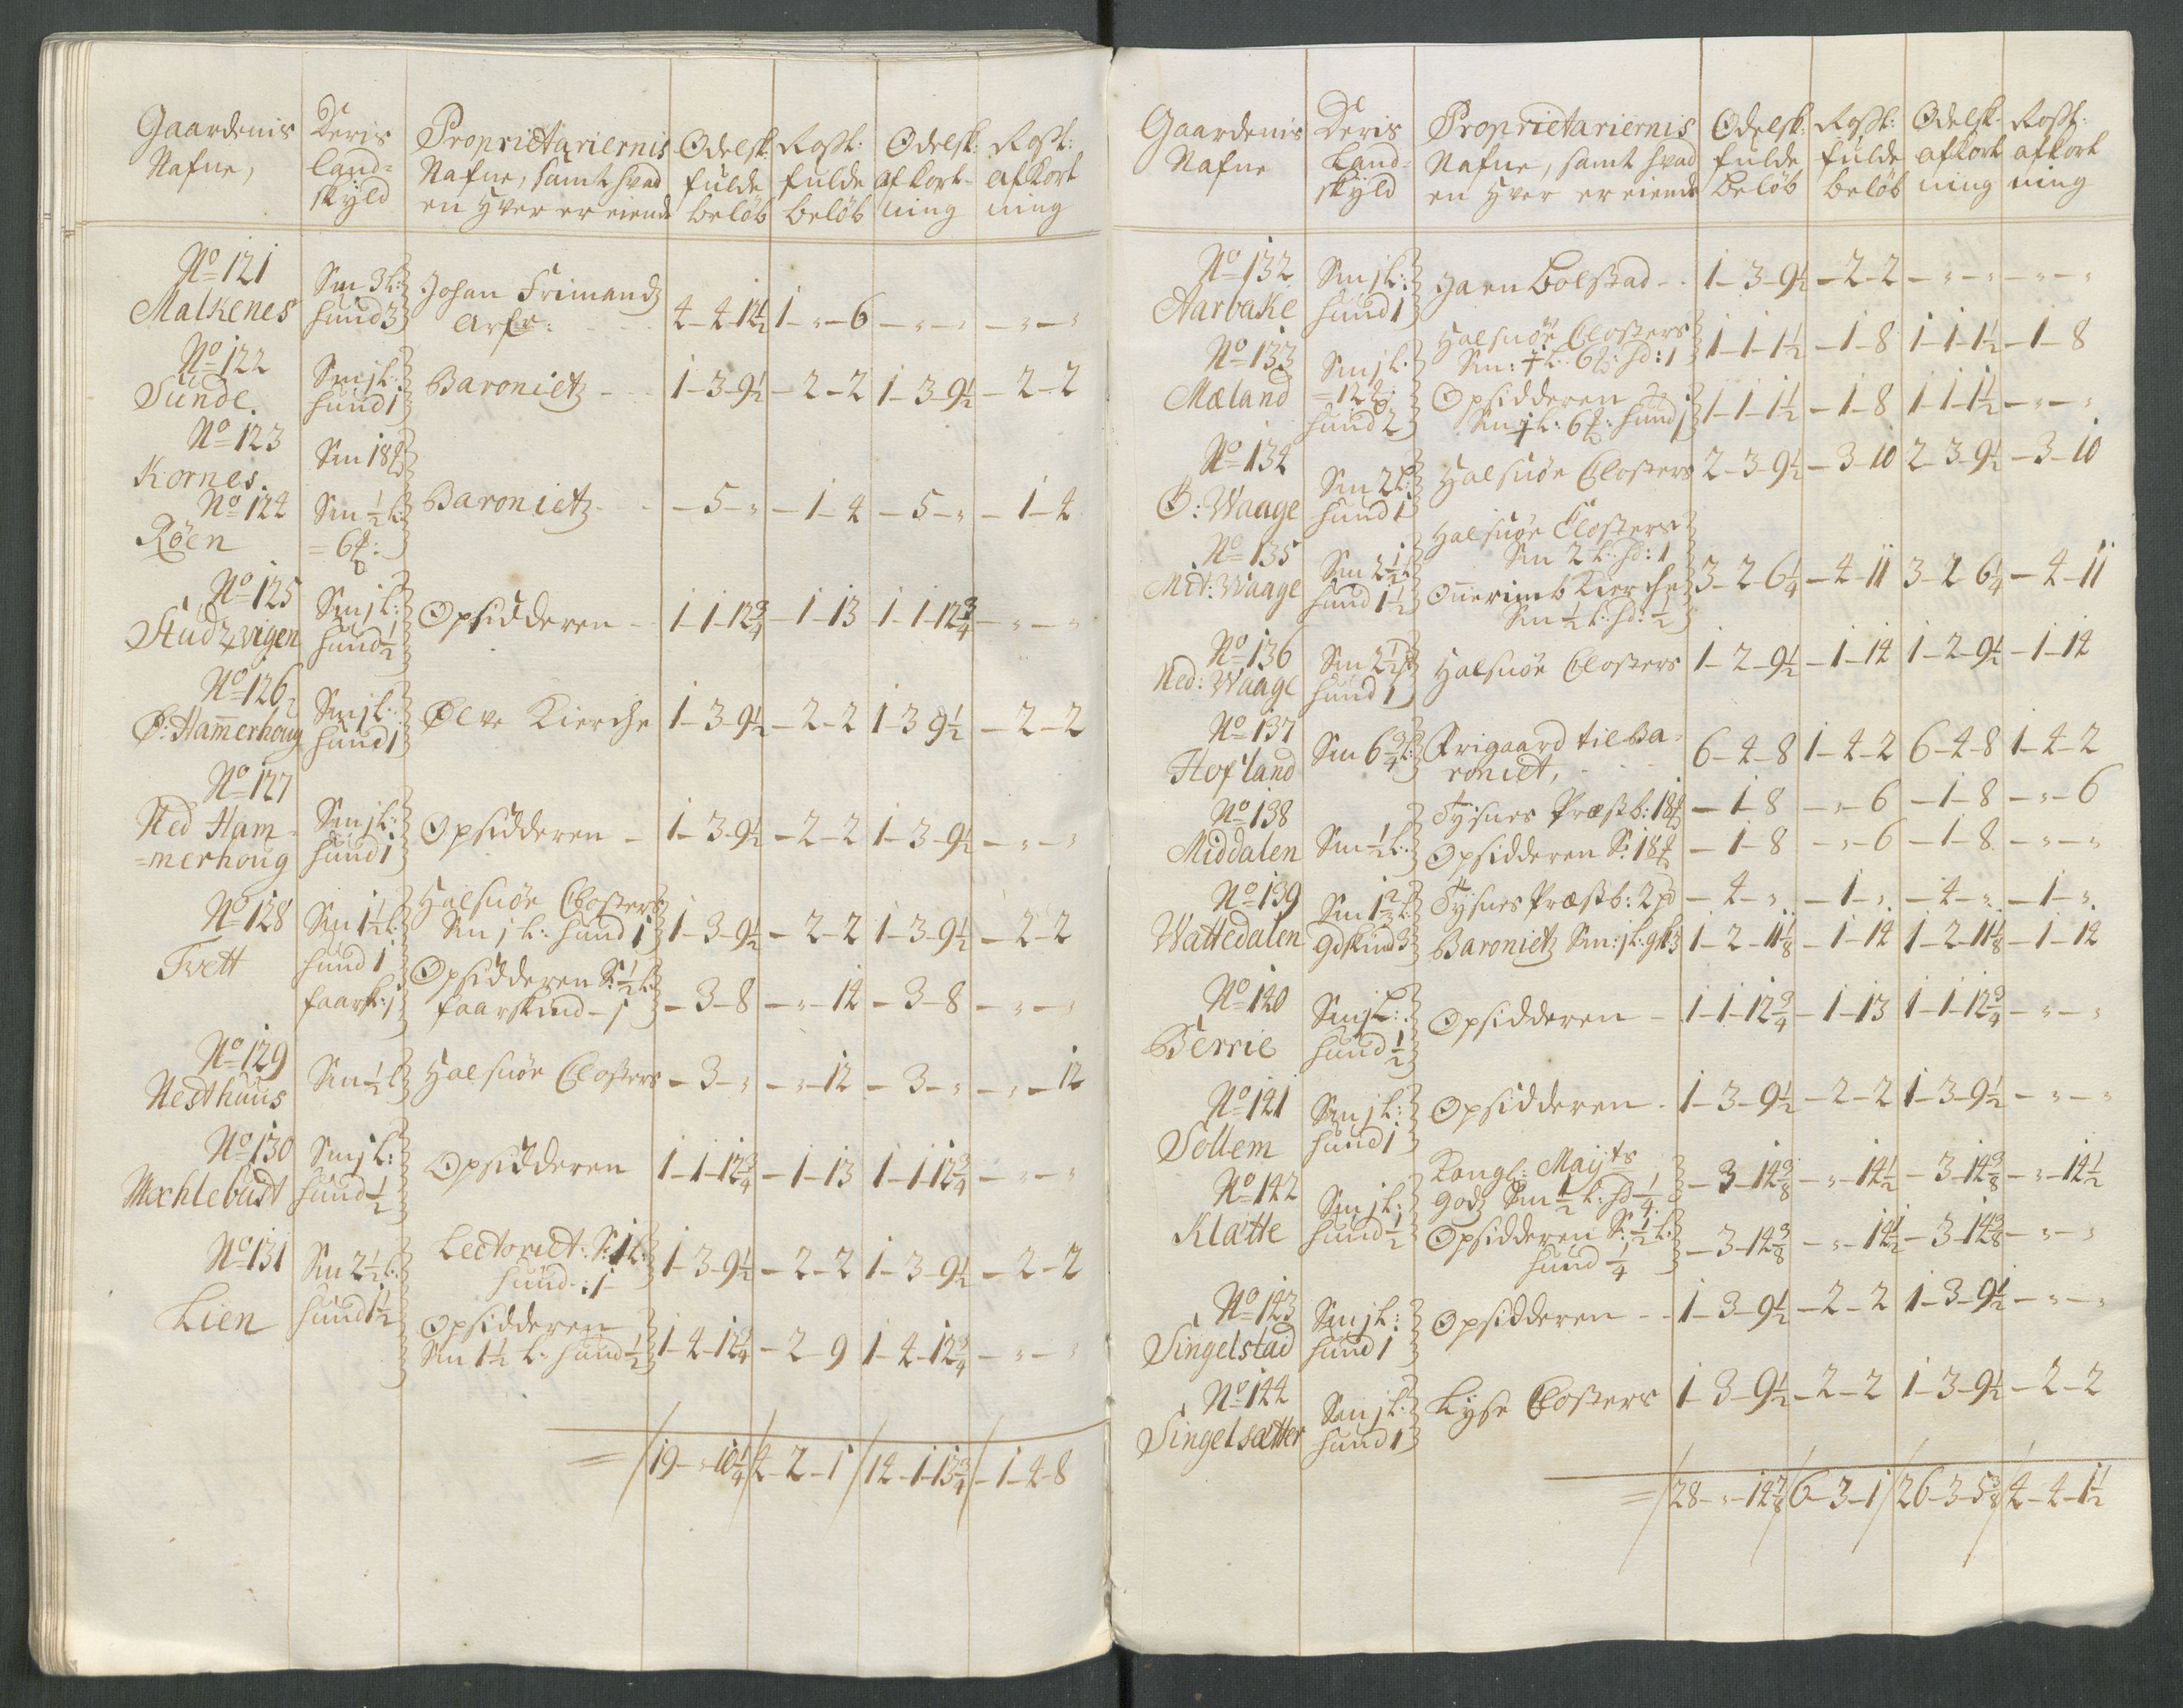 Gaardenis Nafne, | Deris land= skyld | Proprietariernis Nafne, samt hvad en hver er eiende | Odelsk: fulde beløb | Roßt: fulde beløb | Odelsk: afkort- ning | Roßt: afkort ning
No 121 Malkenes | Sm 3 l: hund 3 | Johan Frimandz Arfr: | 4-4-12½ | 1-"-6 | -"-" | -"-"
No 122 Sunde. | Sm j l: hund 1 | Baronietz | 1-3-9½ | -2-2 | 1-3-9½ | -2-2
No 123 Kornes. | Sm 18
No 124 Röen | Sm ½ l: =6 | Baronietz | -5-" | -1-4 | -5-" | -1-4
No 125 Studzvigen | Sm j l: hund ½ | Opsidderen | 1-1-12¾ | -1-13 | 1-1-12¾ | -"-"
No 126. Ø: Ham̄erhoug | Sm j l: hund 1 | Ølve Kierche | 1-3-9½ | -2-2 | 1-3 9½ | -2-2
No 127 Ned Ham= =merhoug | Sm j l: hund 1 | Opsidderen | 1-3-9½ | -2-2 | 1-3-9½ | -"-"
No 128 Tvett | Sm 1½ l: hund 1 faarsk: j | Halsnöe Closters Sm j l: hund j | 1-3-9½ | -2-2 | 1-3-9½ | -2-2
Opsidderen S: ½ l: faarskind - j | -3-8 | -"-14 | -3-8 | -"-"
No 129 Nesthuus | Sm ½ l | Halsnöe Closters | -3-" | -"-12 | -3-" | -"-12
No 130 Mæhlebust | Sm j l: hund ½ | Opsidderen | 1-1-12¾ | -1-13 | 1-1-12¾ | -"-"
No 131 Lien | Sm 2½ l: hund 1½ | Lectoriet: S: 1 l: hund: 1 | 1-3-9½ | -2-2 | 1-3-9½ | -2-2
Opsidderen Sm 1½ l: hund ½ | 1-4-12¾ | -2-9 | 1-4-12¾ | -"-"
= /19-"-10¼ /4-2-1 /14-1-13¾ /-1-4-8
Gaardenis Nafne | Deris Land- skyld | Proprietariernis Nafne, samt hvad en hver er eiende | Odelsk: fulde beløb | Roßt: fulde beløb | Odelsk- afkort ning | Roßt: afkort ning
No 132 Aarbake | Sm j l: hund 1 | Jaen Bolstad | 1-3-9½ | -2-2 | -"-" | -"-"
No 133 Mæland | Sm j l: =12 hund 2 | Halsnöe Closters Sm: l: 6 hd: 1 | 1-1-1½ | -1-8 | 1-1-1½ | -1-8
Opsidderen Sm l: 6 hund j | 1-1-1½ | -1-8 | 1-1-1½ | -"-"
No 134 Ø: Waage | Sm 2 l: hund 1 | Halsnöe Closters | 2-3-9½ | -3-10 | 2-3-9½ | -3-10
No 135 Mit: Waage | Sm 2½ l hund 1½ | Halsnöe Closters Sm 2 l: hd: 1 Onerimb Kierche Sm ½ l: hd: ½ | 3-2-6¼ | -4-11 | 3-2-6¼ | -4-11
No 136 Ned: Waage | Sm 2½ hund 1 | Halsnöe Closters | 1-2-9½ | -1-14 | 1-2-9½ | -1-14
No 137 Hofland | Sm 6¾ l: | Frigaard til Ba- roniet, | 6-4-8 | 1-4-2 | 6-4-8 | 1-4-2
No 138 Middalen | Sm ½ l: | Tysnes Præstb: 18 | -1-8 | -"-6 | -1-8 | -"-6
Opsidderen S: 18 | -1-8 | -"-6 | -1-8 | -"-"
No 139 Wattedalen | Sm 1⅔ l: gdskind 3 | Tysnes Præstb: 2 pd | -4-" | -1-" | -4-" | -1-"
Baronietz Sm: j l: gk 3 | 1-2-11⅛ | -1-14 | 1-2-11⅛ | -1-14
No 140 Berrie | Sm j l: hund ½ | Opsidderen | 1-1-12¾ | -1-13 | 1-1-12¾ | -"-"
No 141 Sollem | Sm j l: hund 1 | Opsidderen | 1-3-9½ | -2-2 | 1-3-9½ | -"-"
No 142 Klatte | Sm j l: hund ½ | Kongl: Mayts godz Sm ½ l: hd ¼ | -3-14⅜ | -"-14½ | -3-14⅜ | -"-14½
Opsidderen S: ½ l: hund ¼ | -3-14⅜ | -"-14½ | -3-14⅜ | -"-"
No 143 Singelstad | Sm j l: hund 1 | Opsidderen | 1-3-9½ | -2-2 | 1-3-9½ | -"-"
No 144 Singelsætter | Sm j l: hund 1 | Lyse Closters | 1-3-9½ | -2-2 | 1-3-9½ | -2-2
= /28-"-14⅞ /6-3-1 /26-3-5⅜ /4-4-1½